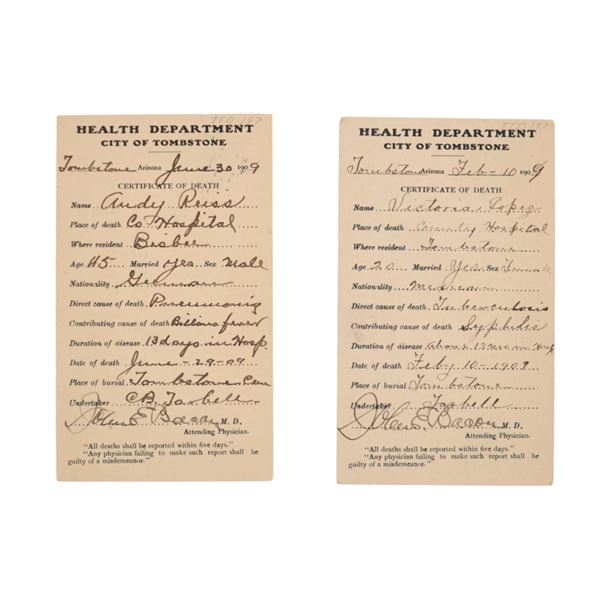 HEALTH DEPARTMENT
CITY OF TOMBSTONE
Tombstone Arizona June 30 1909
CERTIFICATE OF DEATH
Name Andy Reiss
Place of death Co Hospital
Where resident Bisbee
Age 45 Married yes Sex Male
Nationality German
Direct cause of death Pneumonia
Contributing cause of death Billious fever
Duration of disease 13 days in Hosp.
Date of death June - 29 - 09
Place of burial Tombstone Cem
Undertaker C.B. Tarbell
John E Bacon M. D.
Attending Physician.
"All deaths shall be reported within five days."
"Any physician failing to make such report shall be
guilty of a misdemeanor."
HEALTH DEPARTMENT
CITY OF TOMBSTONE
Tombstone Arizona Feb - 10 1909
CERTIFICATE OF DEATH
Name Victoria Lopez
Place of death County Hospital
Where resident Tombstone
Age 20 Married Yes Sex Female
Nationality Mexican
Direct cause of death Tuberculosis
Contributing cause of death Syphilis
Duration of disease about 12 in Hosp
Date of death Feby 10 - 1909
Place of burial Tombstone
Undertaker Tarbell
John E. Bacon M. D.
Attending Physician.
"All deaths shall be reported within five days."
"Any physician failing to make such report shall be
guilty of a misdemeanor."